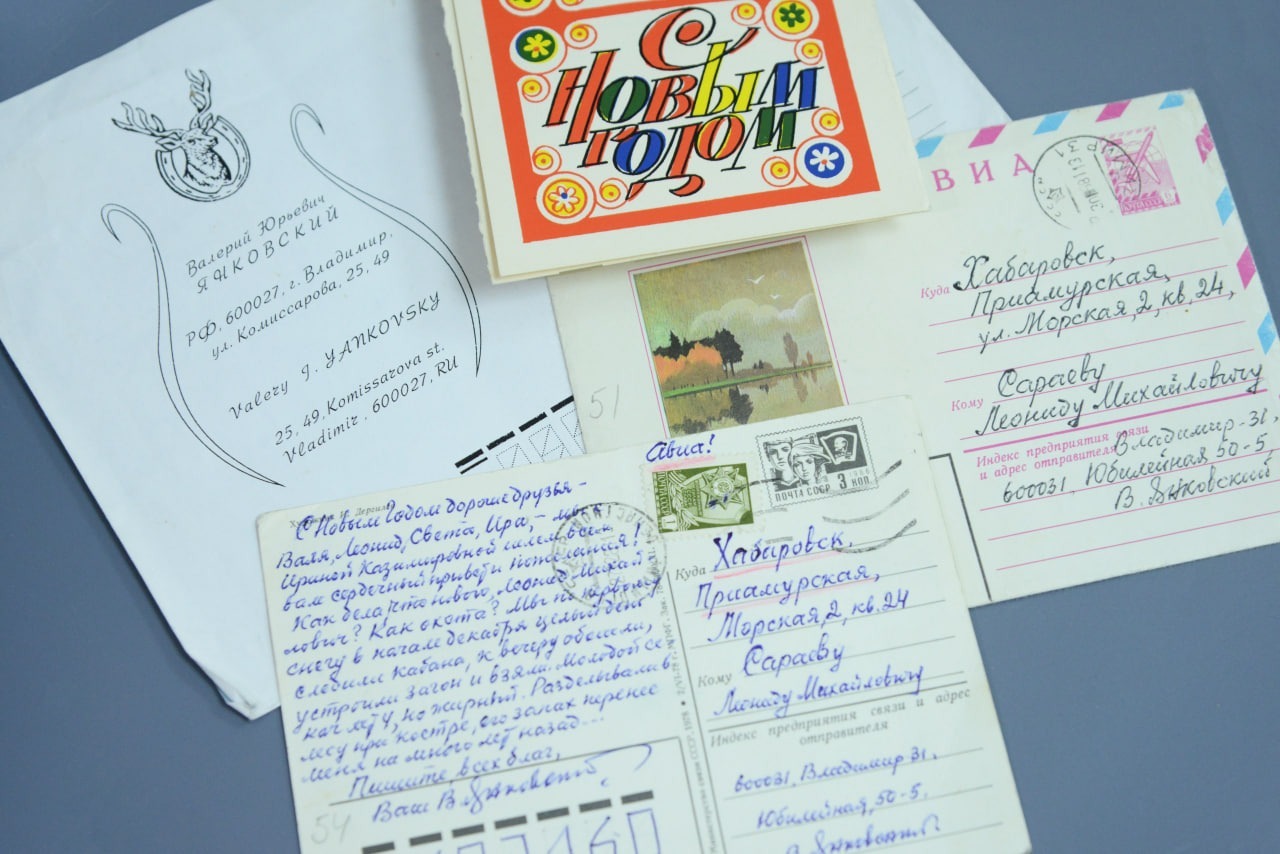 С
Новым
годом
Валерий Юрьевич
ЯНКОВСКИЙ
РФ, 600027, г. Владимир,
ул. Комиссарова, 25, 49
Valery J. YANKOVSKY
25, 49, Komissarova st.
Vladimir, 600027, RU
АВИА
Куда Хабаровск,
Приамурская,
ул. Морская, 2, кв. 24,
Кому Сараеву
Леониду Михайловичу
Индекс предприятия связи
и адрес отправителя
Владимир-31,
600031, Юбилейная 50-5,
В. Янковский
51
Авиа!
ПОЧТА СССР 3 КОП
С Новым Годом дорогие друзья –
Валя, Леонид, Света, Ира, – мы с
Ириной Казимировной шлем всем
вам сердечный привет и пожелания!
Как дела, что нового, Леонид Михай
лович? Как охота? Мы по первому
снегу в начале декабря целый день
следили кабана, к вечеру обошли,
устроили загон и взяли. Молодой се
кач лету, но жирный. Разделывали в
лесу при костре, его запах перенес
меня на много лет назад...
Пишите, всех благ,
Ваш В Янковский
54
Министерство связи СССР, 1978
Куда Хабаровск.
Приамурская,
Морская, 2, кв. 24
Кому Сараеву
Леониду Михайловичу
Индекс предприятия связи и адрес
отправителя
600031, Владимир 31,
Юбилейная, 50-5.
В. Янковский